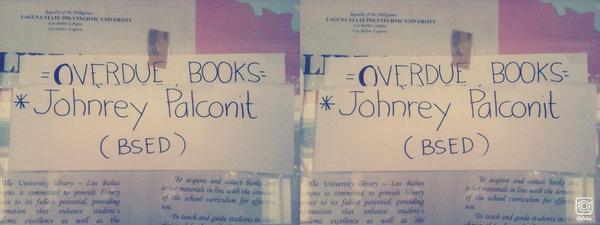 Republic of the Philippines
LAGUNA STATE POLYTECHNIC UNIVERSITY
Los Baños Campus
Los Baños, Laguna
=OVERDUE BOOKS=
*Johnrey Palconit
(BSED)
The University library - Los Baños
pus is committed to provide library
ice to its fullest potential, providing
rmation that enhance student's
demic excellence as well as the
To acquire and collect books and
other materials in line with the demands
of the school curriculum for effective
use.
To teach and guide students in the
Republic of the Philippines
LAGUNA STATE POLYTECHNIC UNIVERSITY
Los Baños Campus
Los Baños, Laguna
=OVERDUE BOOKS=
*Johnrey Palconit
(BSED)
The University library - Los Baños
pus is committed to provide library
ice to its fullest potential, providing
rmation that enhance student's
demic excellence as well as the
To acquire and collect books
other materials in line with the dem
of the school curriculum for effe
use.
To teach and guide students